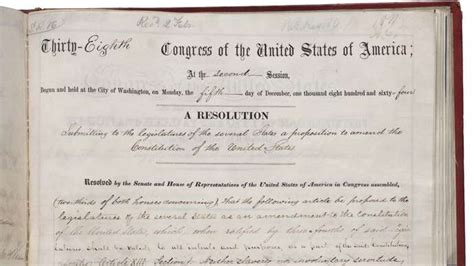 Thirty-Eighth Congress of the United States of America;
At the second Session,
Begun and held at the City of Washington, on Monday, the fifth day of December, one thousand eight hundred and sixty-four
A RESOLUTION
Submitting to the legislatures of the several States a proposition to amend the
Constitution of the United States
Resolved by the Senate and House of Representatives of the United States of America in Congress assembled,
(two-thirds of both houses concurring), that the following article be proposed to the
legislatures of the several states as an amendment to the constitution
of the United States, which, when ratified by three-fourths of said
shall be valid, to all intents and purposes, as a part of the said
Article XIII Section 1 Neither slavery nor involuntary servitude,